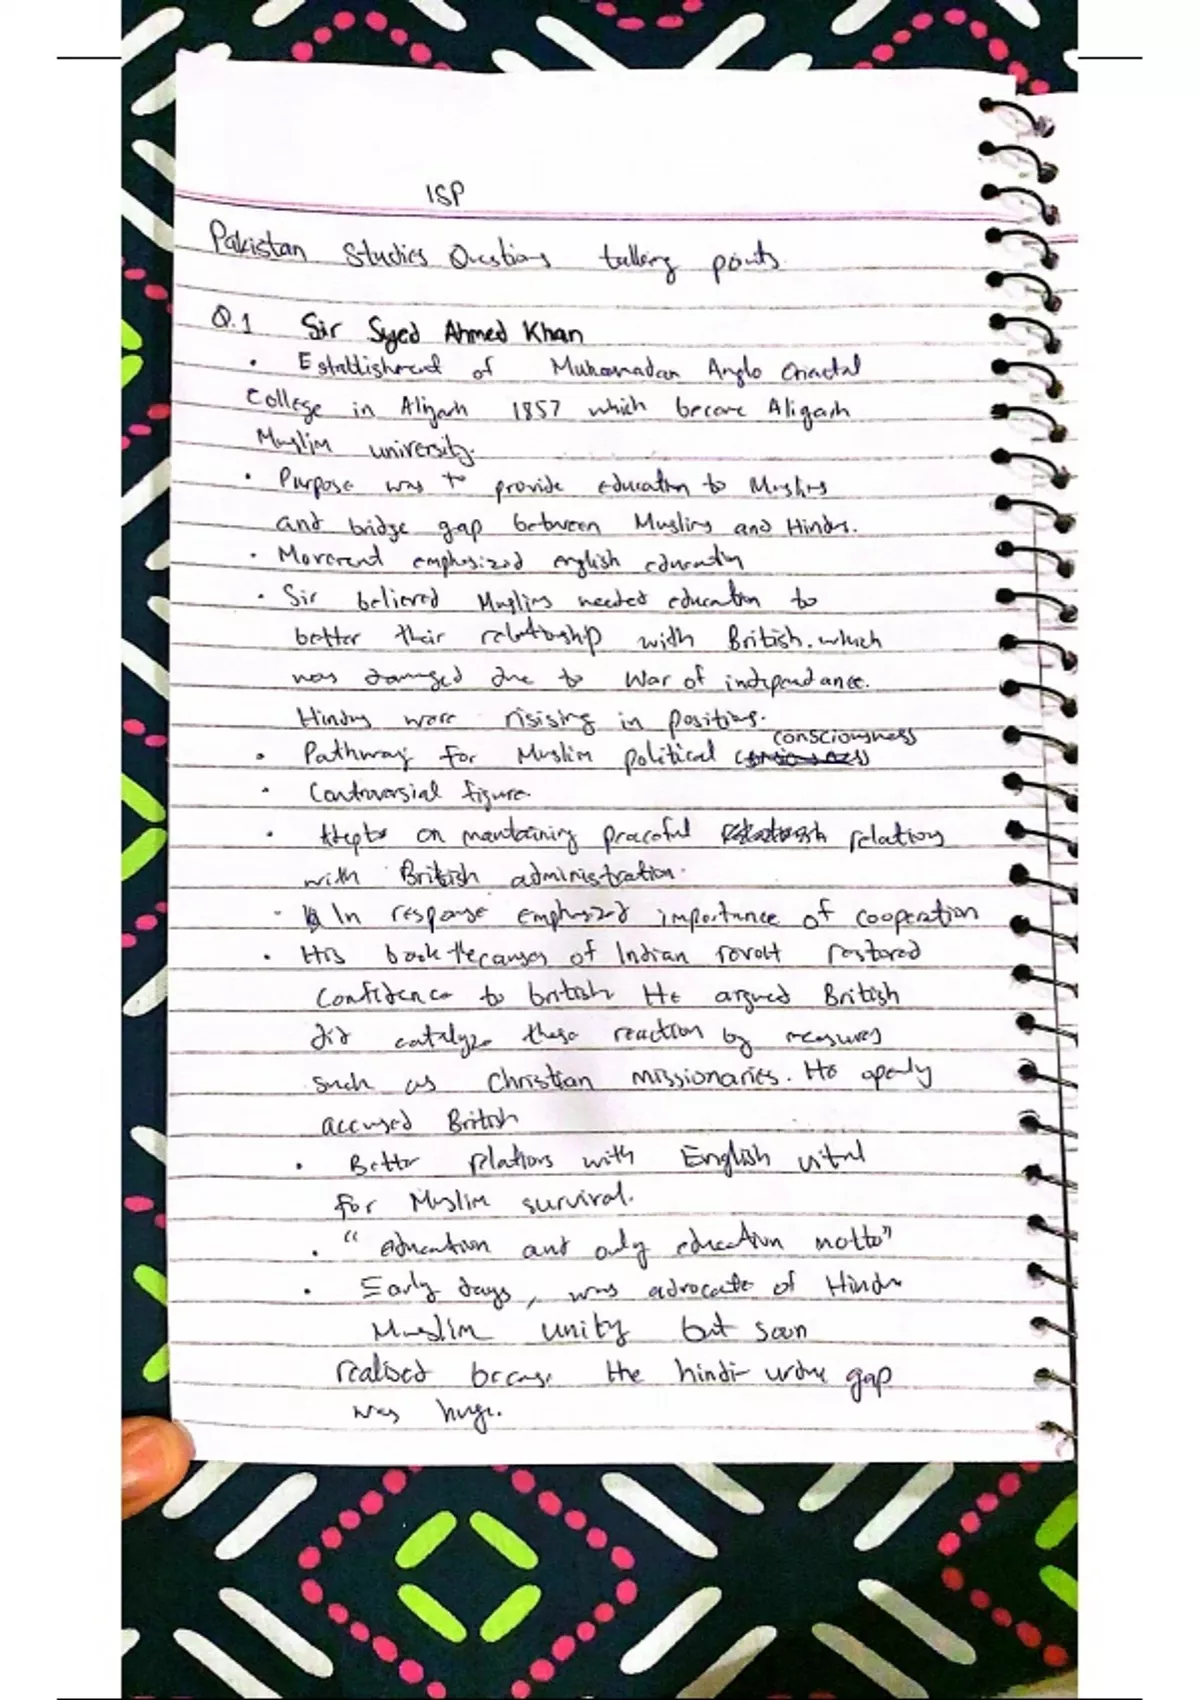 ISP
Pakistan Studies Questions talking points
Q.1 Sir Syed Ahmed Khan
• Establishment of Muhammadan Anglo Oriental
College in Aligarh 1857 which became Aligarh
Muslim university.
• Purpose was to provide education to Muslims
and bridge gap between Muslims and Hindus.
• Movement emphasized english education
• Sir believed Muslims needed education to
better their relationship with British. which
was damaged due to War of independance.
Hindus were risising in positions.
• Pathway for Muslim political consciousness
• Controversial figure.
• on maintaining peaceful relations
with British administration.
- In response emphasized importance of cooperation
• His book the causes of Indian revolt restored
confidence to british He argued British
did catalyze these reaction by measures
such as Christian missionaries. He openly
accused British
• Better relations with English vital
for Muslim survival.
• "education and only education motto"
• Early days, was advocate of Hindu
Muslim unity but soon
realised because the hindi-urdu gap
was huge.